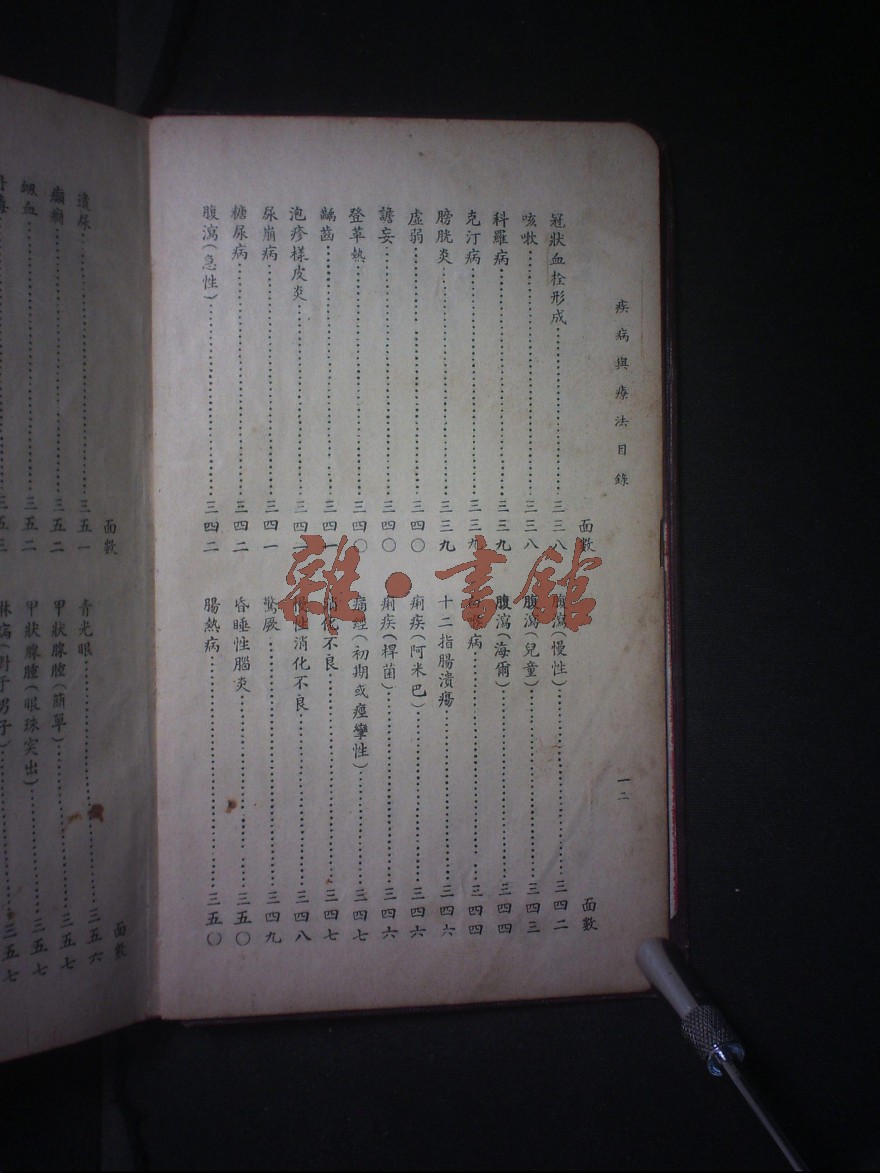 疾病與療法目錄
一二
面數
冠狀血栓形成……三三八
咳嗽……三三八
科羅病……三三九
克汀病……三三九
膀胱炎……三三九
虛弱……三四〇
譫妄……三四〇
登革熱……三四〇
齲齒……三四一
泡疹樣皮炎……三四一
尿崩病……三四一
糖尿病……三四二
腹瀉(急性)……三四二
面數
腹瀉(慢性)……三四二
腹瀉(兒童)……三四三
腹瀉(海爾)……三四四
白喉病……三四四
十二指腸潰瘍……三四六
痢疾(阿米巴)……三四六
痢疾(桿菌)……三四六
痛經(初期或痙攣性)……三四七
消化不良……三四七
慢性消化不良……三四八
驚厥……三四九
昏睡性腦炎……三五〇
腸熱病……三五〇
雜·書館
面數
遺尿……三五一
癲癇……三五二
衂血……三五二
……三五三
面數
青光眼……三五六
甲狀腺腫(簡單)……三五七
甲狀腺腫(眼珠突出)……三五七
淋病(對于男子)……三五七